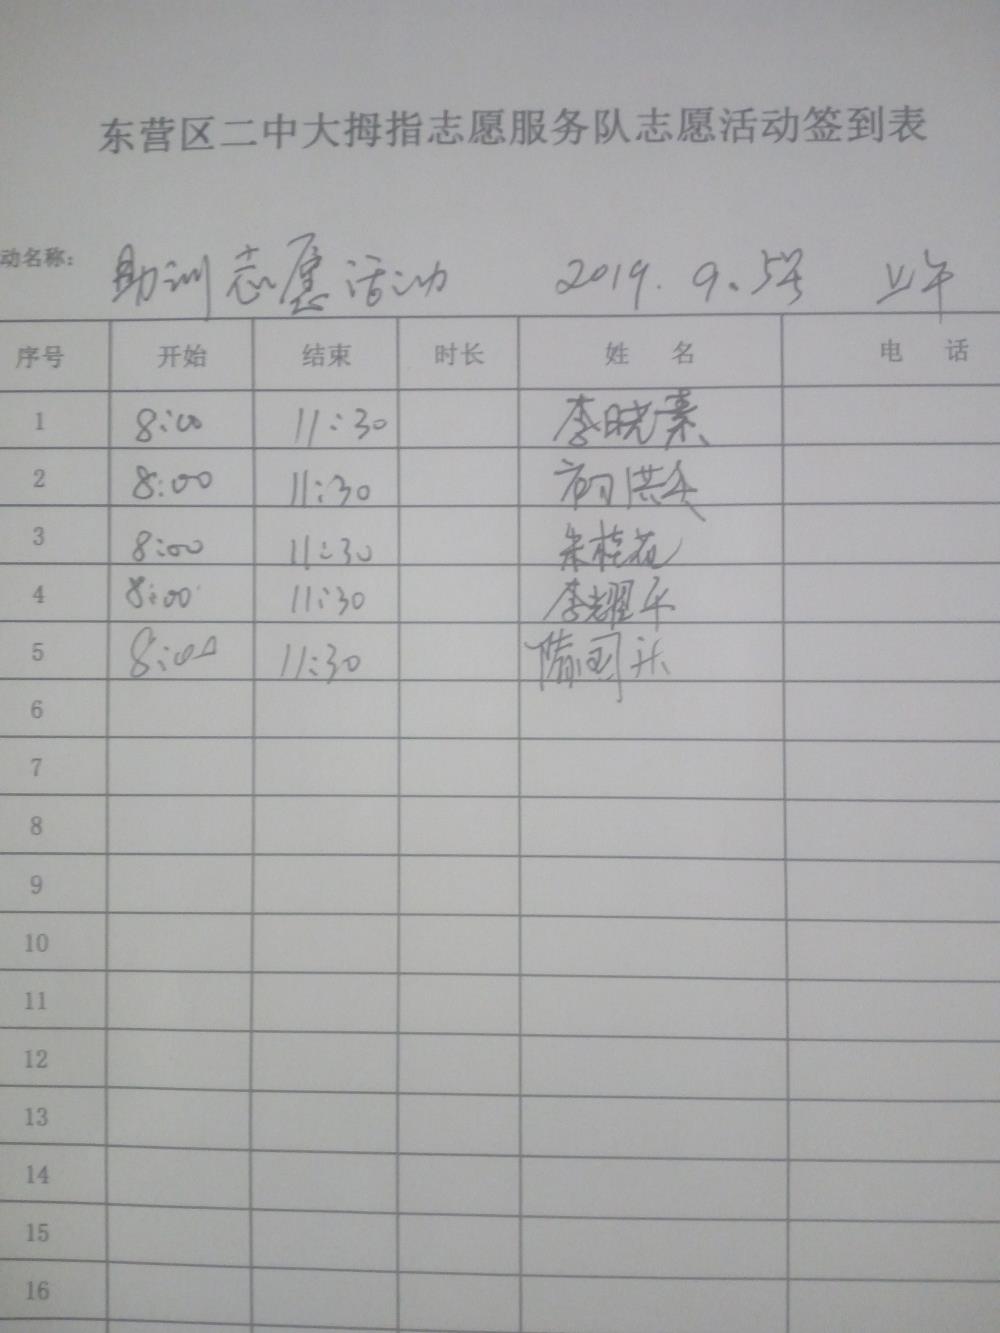 东营区二中大拇指志愿服务队志愿活动签到表
动名称: 助训志愿活动 2019.9.5号 上午
序号 开始 结束 时长 姓 名 电 话
1 8:00 11:30 李晓素
2 8:00 11:30
3 8:00 11:30 朱桂花
4 8:00 11:30 李耀平
5 8:00 11:30 隋国
6
7
8
9
10
11
12
13
14
15
16